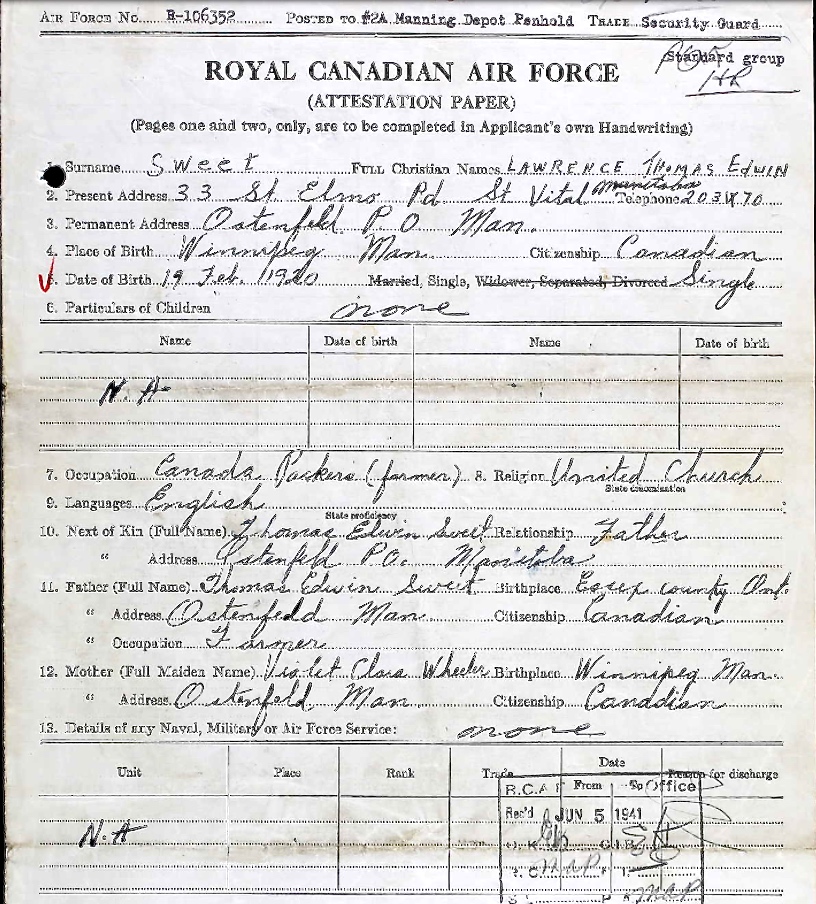 AIR FORCE NO. R-106352 POSTED TO #2A Manning Depot Penhold TRADE Security Guard
Standard group
ROYAL CANADIAN AIR FORCE
(ATTESTATION PAPER)
(Pages one and two, only, are to be completed in Applicant's own Handwriting)
1. Surname Sweet FULL Christian Names LAWRENCE THOMAS EDWIN
2. Present Address 33 St. Elmo Rd St Vital Manitoba Telephone 203 170
3. Permanent Address Ostenfeld P.O Man.
4. Place of Birth Winnipeg Man. Citizenship Canadian
5. Date of Birth 19 Feb. 1920 Married, Single, Widower, Separated, Divorced Single
6. Particulars of Children none
Name Date of birth Name Date of birth
N.A
7. Occupation Canada Packers (farmer) 8. Religion United Church
State denomination
9. Languages English
State proficiency
10. Next of Kin (Full Name) Thomas Edwin Sweet Relationship Father
" Address Ostenfeld P.O. Manitoba
11. Father (Full Name) Thomas Edwin Sweet Birthplace Essex county Ont.
" Address Ostenfeld Man Citizenship Canadian
" Occupation Farmer
12. Mother (Full Maiden Name) Violet Clara Wheeler Birthplace Winnipeg Man.
" Address Ostenfeld Man. Citizenship Canadian
13. Details of any Naval, Military or Air Force Service: none
Unit Place Rank Trade Date Reason for discharge
From To
R.C.A.F. Office
Rec'd JUN 5 1941
N.A